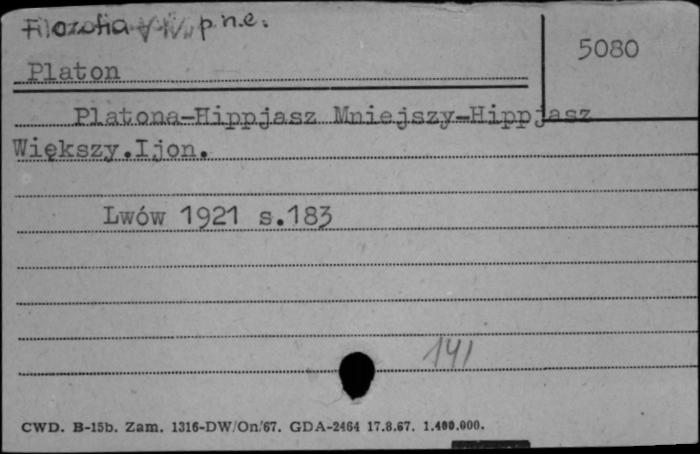 Filozofia V-IV w p.n.e.
5080
Platon
Platona-Hippjasz Mniejszy-Hippjasz
Większy.Ijon.
Lwów 1921 s.183
141
CWD. B-15b. Zam. 1316-DW/On/67. GDA-2464 17.8.67. 1.400.000.